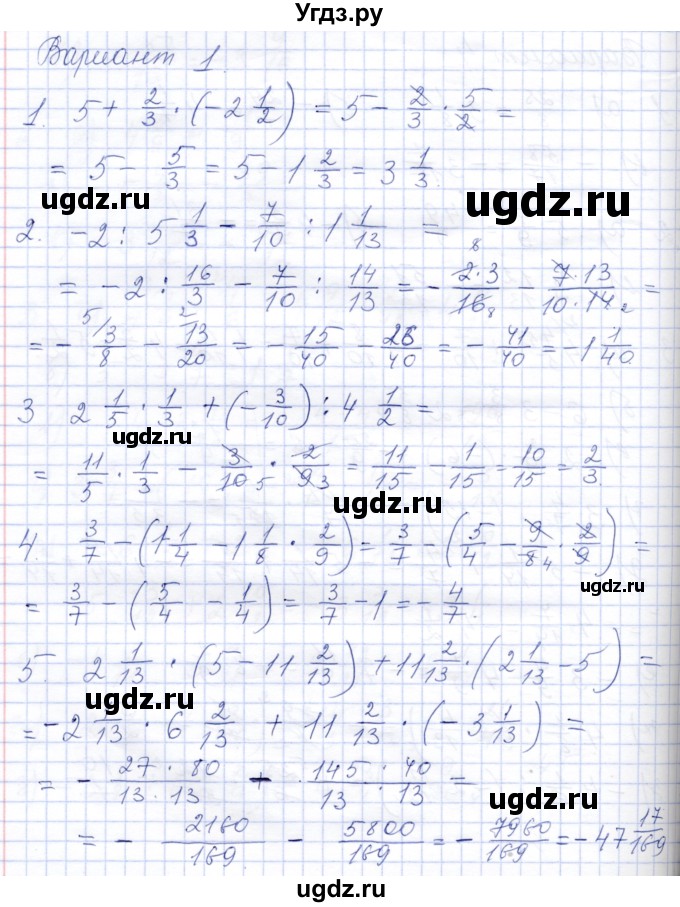 Угдз.ру
Вариант 1.
1. 5 + 2/3 · (-2 1/2) = 5 - 2/3 · 5/2 =
= 5 - 5/3 = 5 - 1 2/3 = 3 1/3.
ugdz.ru ugdz.ru
2. -2 : 5 1/3 - 7/10 : 1 1/13 =
= -2 : 16/3 - 7/10 : 14/13 = - 2·3/16 8 - 7·13/10·14 2 =
= - 5/3/8 - 2/13/20 = - 15/40 - 26/40 = - 41/40 = -1 1/40.
3 2 1/5 · 1/3 + (- 3/10) : 4 1/2 =
ugdz.ru
= 11/5 · 1/3 - 3/10 5 · 2/9 3 = 11/15 - 1/15 = 10/15 = 2/3.
ugdz.ru
4. 3/7 - (1 1/4 - 1 1/8 · 2/9) = 3/7 - (5/4 - 9/8 4 · 2/9) =
= 3/7 - (5/4 - 1/4) = 3/7 - 1 = - 4/7.
ugdz.ru
5. 2 1/13 · (5 - 11 2/13) + 11 2/13 · (2 1/13 - 5) =
ugdz.ru
= -2 1/13 · 6 2/13 + 11 2/13 · (-3 1/13) =
ugdz.ru
= - 27 · 80/13 · 13 + 145 · 40/13 · 13 =
= - 2160/169 - 5800/169 = - 7960/169 = -47 17/169
ugdz.ru ugdz.ru
ugdz.ru